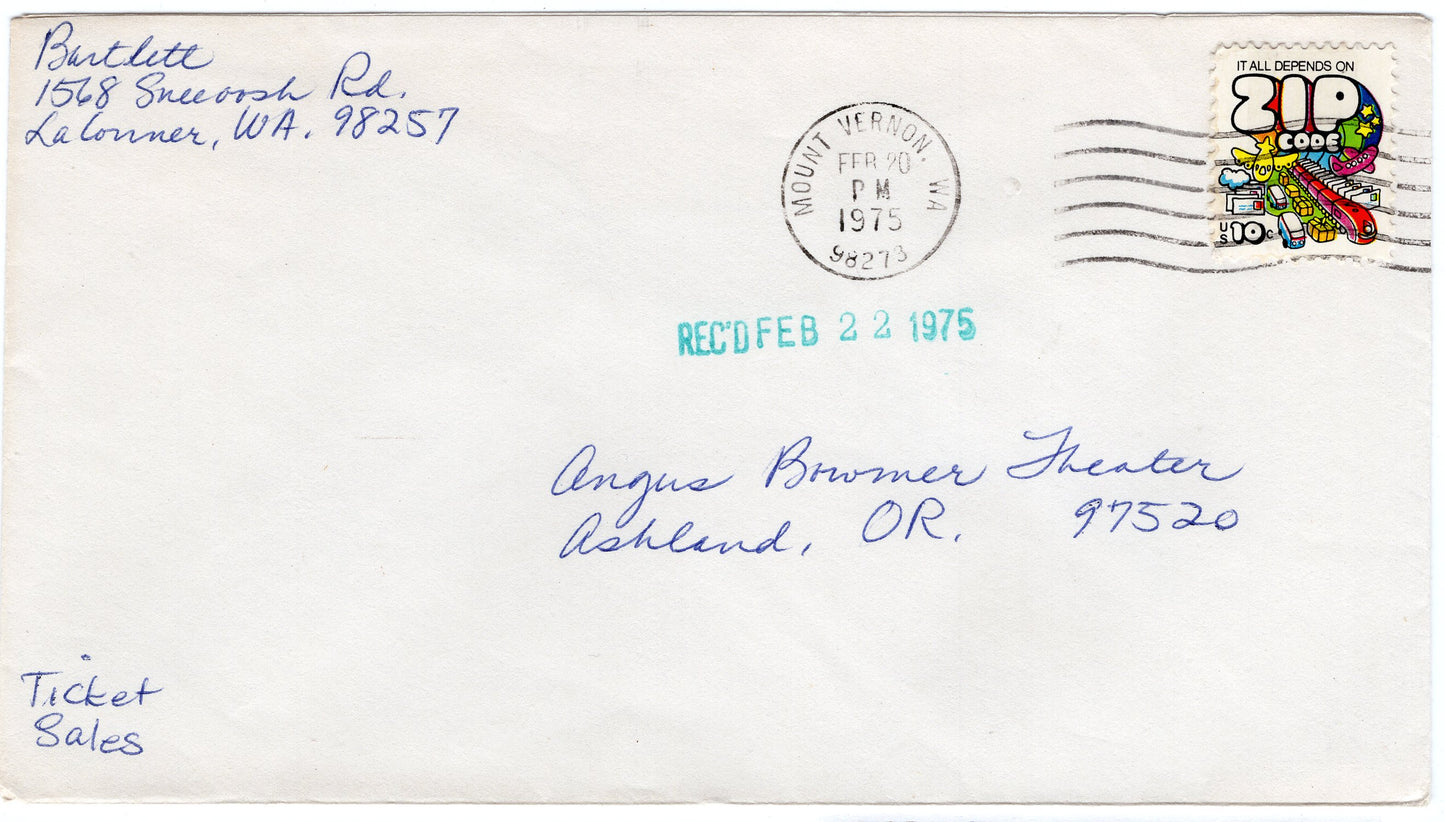 Bartlett
1568 Sneeoosh Rd.
LaConner, WA. 98257
MOUNT VERNON, WA
FEB 20
PM
1975
98273
IT ALL DEPENDS ON
ZIP
CODE
US 10c
REC'D FEB 22 1975
Angus Bowmer Theater
Ashland, OR. 97520
Ticket
Sales